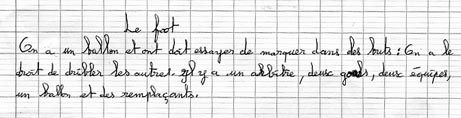 Le foot
On a un ballon et ont doit essayer de marquer dans des buts : On a le
droit de dribler les autres. Il y a un abbitre, deux goals, deux équipes,
un ballon et des remplaçants.